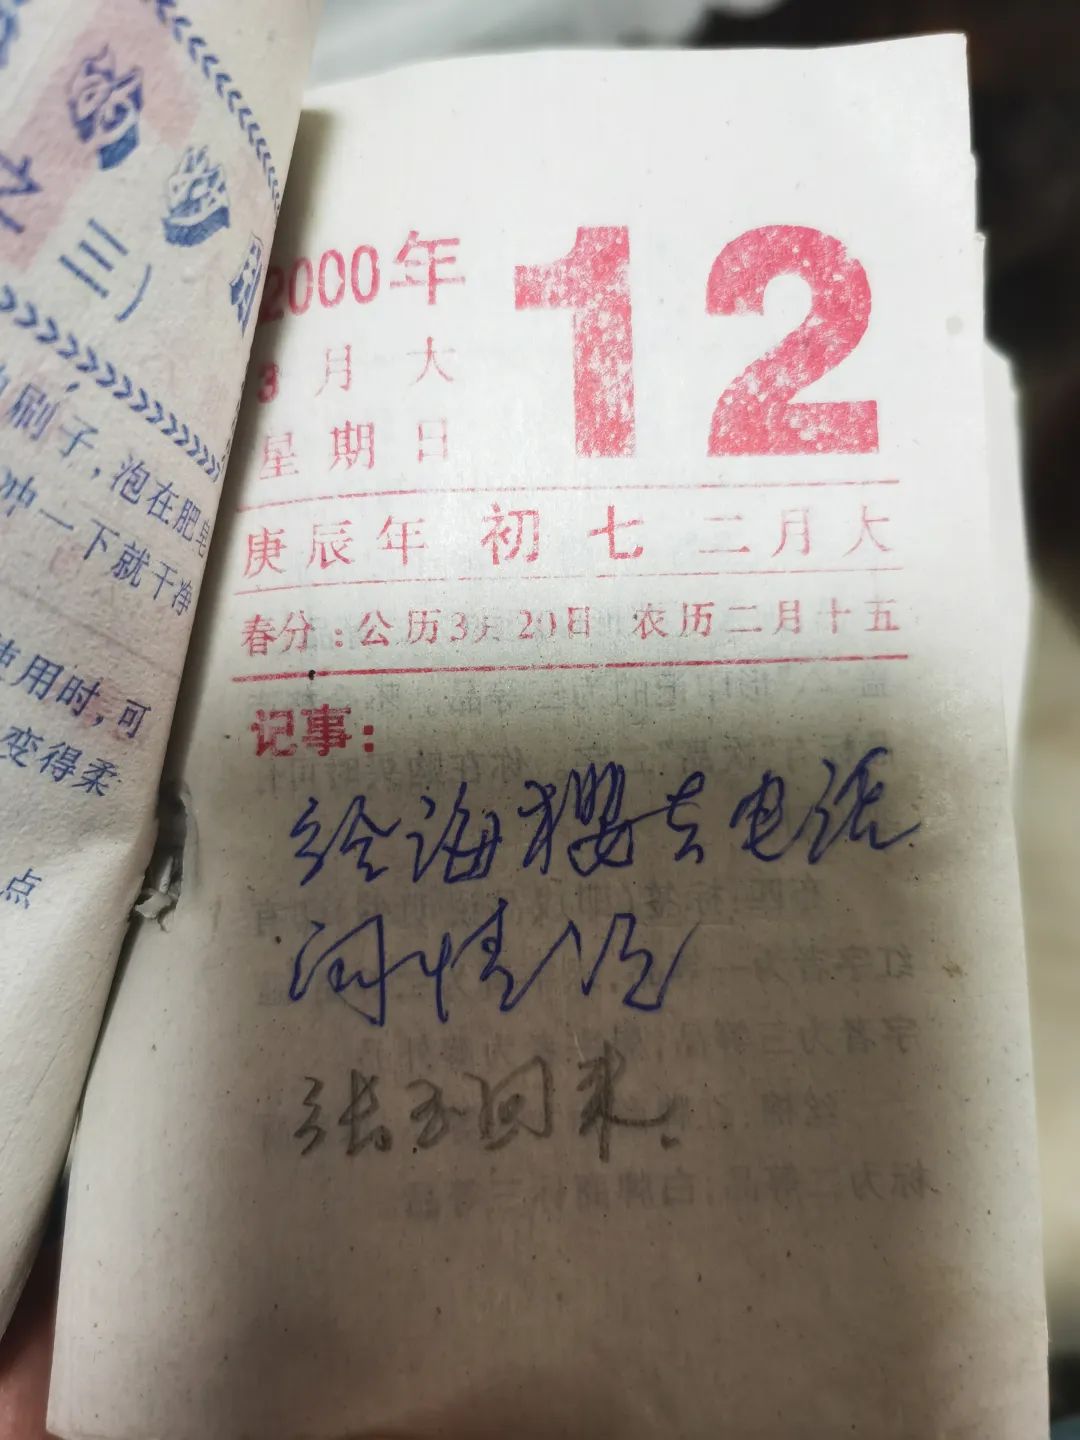 之三)
刷子，泡在肥皂
冲一下就干净
使用时，可
变得柔
点
2000年
3月大
星期日
12
庚辰年 初七 二月大
春分：公历3月20日 农历二月十五
记事：
给海樱去电话
问情况
张玉回来.